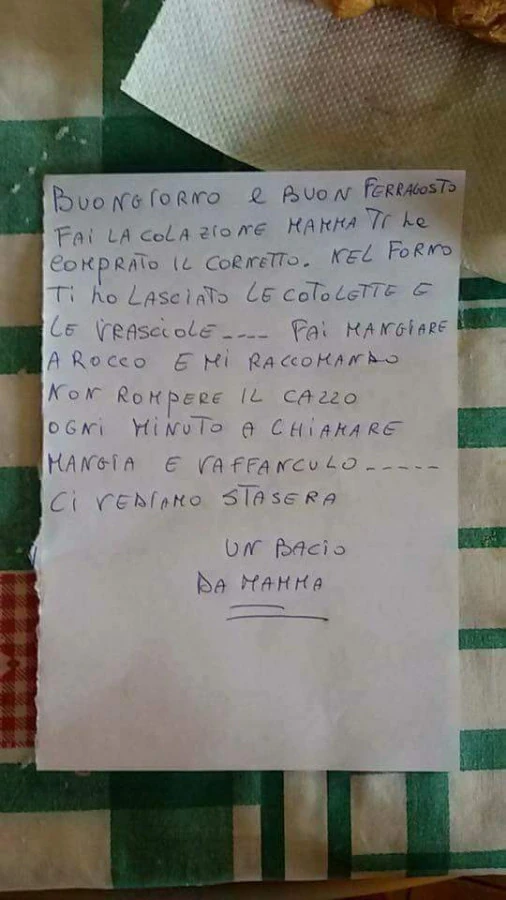 BUONGIORNO e BUON FERRAGOSTO
FAI LA COLAZIONE MAMMA TI he
COMPRATO IL CORNETTO. NEL FORNO
Ti ho LASCIATO LE COTOLETTE E
LE VRASCIOLE---- FAI MANGIARE
A ROCCO E Mi RACCOMANDO
NON ROMPERE IL CAZZO
OGNI MINUTO A CHIAMARE
MANGIA E VAFFANCULO-----
Ci VEDIAMO STASERA
UN BACIO
DA MAMMA